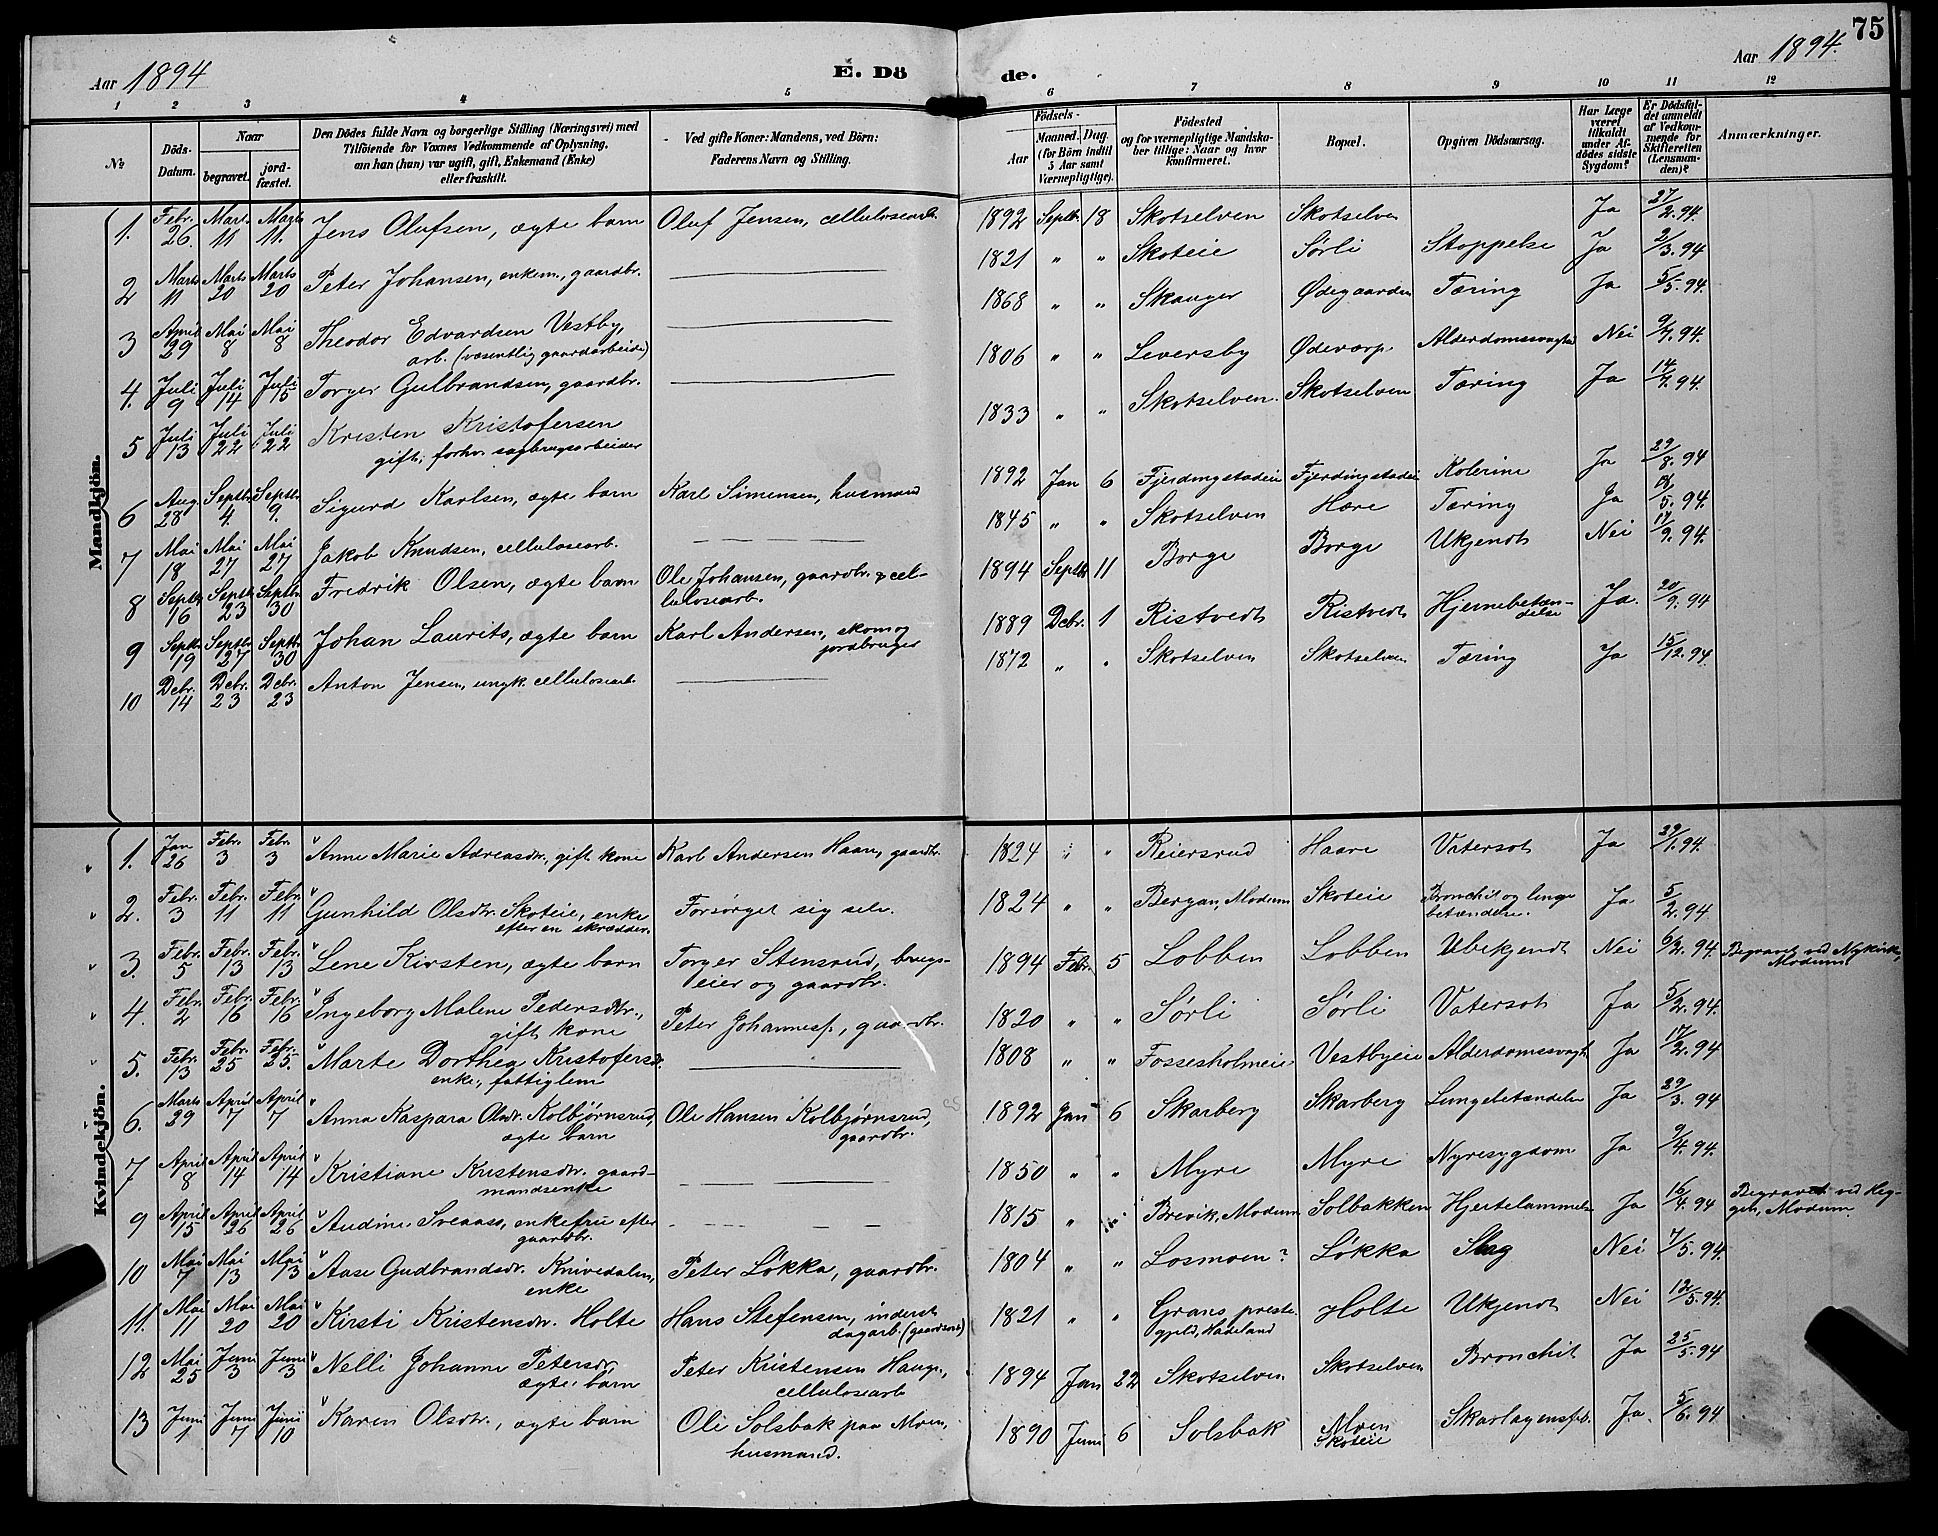 75
Aar 1894
E. Dö
de.
Aar 1894.
1 2 3 4 5 6 7 8 9 10 11 12
No
Döds-
Datum.
Naar
begravet.
jord-
fæstet.
Den Dödes fulde Navn og borgerlige Stilling (Næringsvei) med
Tilföiende for Voxnes Vedkommende af Oplysning,
om han (hun) var ugift, gift, Enkemand (Enke)
eller fraskilt.
Ved gifte Koner: Mandens, ved Börn:
Faderens Navn og Stilling.
Födsels-
Aar
Maaned. Dag.
(for Börn indtil
5 Aar samt
Værnepligtige).
Födested
og for værnepligtige Mandska-
ber tillige: Naar og hvor
konfirmeret.
Bopæl.
Opgiven Dödsaarsag.
Har Læge
været
tilkaldt
under Af-
dödes sidste
Sygdom?
Er Dödsfal-
det anmeldt
af Vedkom-
mende for
Skifteretten
(Lensman-
den)?
Anmærkninger.
Mandkjön.
1. Febr. 26. Marts 11 Marts 11. Jens Olufsen, ægte barn Oluf Jensen, cellulosearb. 1892 Septbr. 18 Skotselven Skotselven Ja 27/2. 94.
2 Marts 11 Marts 20 Marts 20 Peter Johansen, enkem., gaardbr. 1821 " " Skoteie Sørli Stoppelse Ja 2/3. 94.
3 April 29 Mai 8 Mai 8 Theodor Edvardsen Vestby, 1868 " " Skauger Ødegaarden Tæring Ja 5/5. 94.
arb. (væsentlig gaardarbeide)
4. Juli 9 Juli 14 Juli 15 Torger Gulbrandsen, gaardbr. 1806 " " Leversby Ødevarp Alderdomssvaghed Nei 9/7. 94.
5 Juli 13 Juli 22 Juli 22 Kristen Kristofersen 1833 " " Skotselven. Skotselven Tæring Ja 14/7. 94.
gift, forhv. sagbrugsarbeider
6 Aug. 28 Septbr. 4. Septbr. 9. Sigurd Karlsen, ægte barn Karl Simensen, husmand 1892 Jan 6 Fjerdingstadeie Fjerdingstadeie Kolerine Ja 29/8. 94
7 Mai 18 Mai 27 Mai 27 Jakob Knudsen, cellulosearb. 1845 " " Skotselven Hære Tæring Ja 18/5. 94.
8 Septbr. 16 Septbr. 23 Septbr. 30 Fredrik Olsen, ægte barn Ole Johansen, gaardbr. & cel- 1894 Septbr. 11 Borge Borge Ukjendt Nei 17/9. 94.
lulosearb.
9 Septbr. 19 Septbr. 27 Septbr. 30 Johan Laurits, ægte barn Karl Andersen, skom. og 1889 Debr. 1 Ristvedt Ristvedt Hjernebetæn- Ja. 20/9. 94
jordbruger
delse
10 Debr. 14 Debr. 23 Debr. 23 Anton Jensen, ungk. cellulosearb. 1872 " " Skotselven Skotselven Tæring Ja 15/12. 94.
Kvindekjön.
1. Jan 26 Febr. 3 Febr. 3 Anne Marie Adreasdr. gift kone Karl Andersen Haare, gaardbr. 1824 " " Reiersrud Haare Vatersot Ja 29/1. 94.
2. Febr. 3 Febr. 11 Febr. 11 Gunhild Olsdtr. Skoteie, enke Forsørget sig selv. 1824 " " Bergan, Modum Skoteie Bronchit og lunge Ja 5/2. 94
efter en skrædder.
betændelse.
3. Febr. 5 Febr. 13 Febr. 13 Lene Kirsten, ægte barn Torger Stensrud, brugs- 1894 Febr. 5 Lobben Lobben Ubekjendt Nei 6/2. 94. Begravet ved Nykirke,
eier og gaardbr.
Modum
4. Febr. 2 Febr. 16 Febr. 16 Ingeborg Malene Pedersdtr., Peter Johanness., gaardbr. 1820 " " Sørli Sørli Vatersot Ja 5/2. 94.
gift kone
5. Febr. 13 Febr. 25 Febr. 25. Marte Dorthea Kristofersd. 1808 " " Fossesholmeie Vestbyeie Alderdomssvagh. Ja 17/2. 94
enke, fattiglem
6. Marts 29 April 7 April 7 Anna Kaspara Olsdr. Kolbjørnsrud, Ole Hansen Kolbjørnsrud, 1892 Jan 6 Skarberg Skarberg Lungebetændelse Ja 29/3. 94
ægte barn
gaardbr.
7 April 8 April 14 April 14 Kristiane Kristensdtr. gaard- 1850 " " Myre Myre Nyresygdom Ja 9/4. 94.
mandsenke
9 April 15 April 26 April 26 Andine Sveaass, enkefru efter 1815 " " Brevik, Modum Solbakken Hjertelammelse Ja 16/4. 94 Begravet ved Heg-
gen, Modum.
gaardbr.
10 Mai 7 Mai 13 Mai 13 Aase Gudbrandsdr. Knivedalen, Peter Løkka, gaardbr. 1804 " " Losmoen? Løkka Slag Nei 7/5. 94.
enke
11. Mai 11 Mai 20 Mai 20 Kirsti Kristensdr. Holte Hans Stefensen, inderst 1821 " " Grans preste Holte Ukjendt Nei 12/5. 94.
dagarb. (gaardsarb)
gjeld, Hadeland
12 Mai 25 Juni 3 Juni 3 Nelli Johanne Petersdr. Peter Kristensen Hauge, 1894 Jan 22 Skotselven Skotselven Bronchit Ja 25/5. 94
ægte barn
cellulosearb
13 Juni 1 Juni 7 Juni 10 Karen Olsdtr., ægte barn Ole Solsbak paa Moen, 1890 Juni 6 Solsbak Moen Skarlagensfeb. Ja. 5/6. 94
husmand.
Skoteie